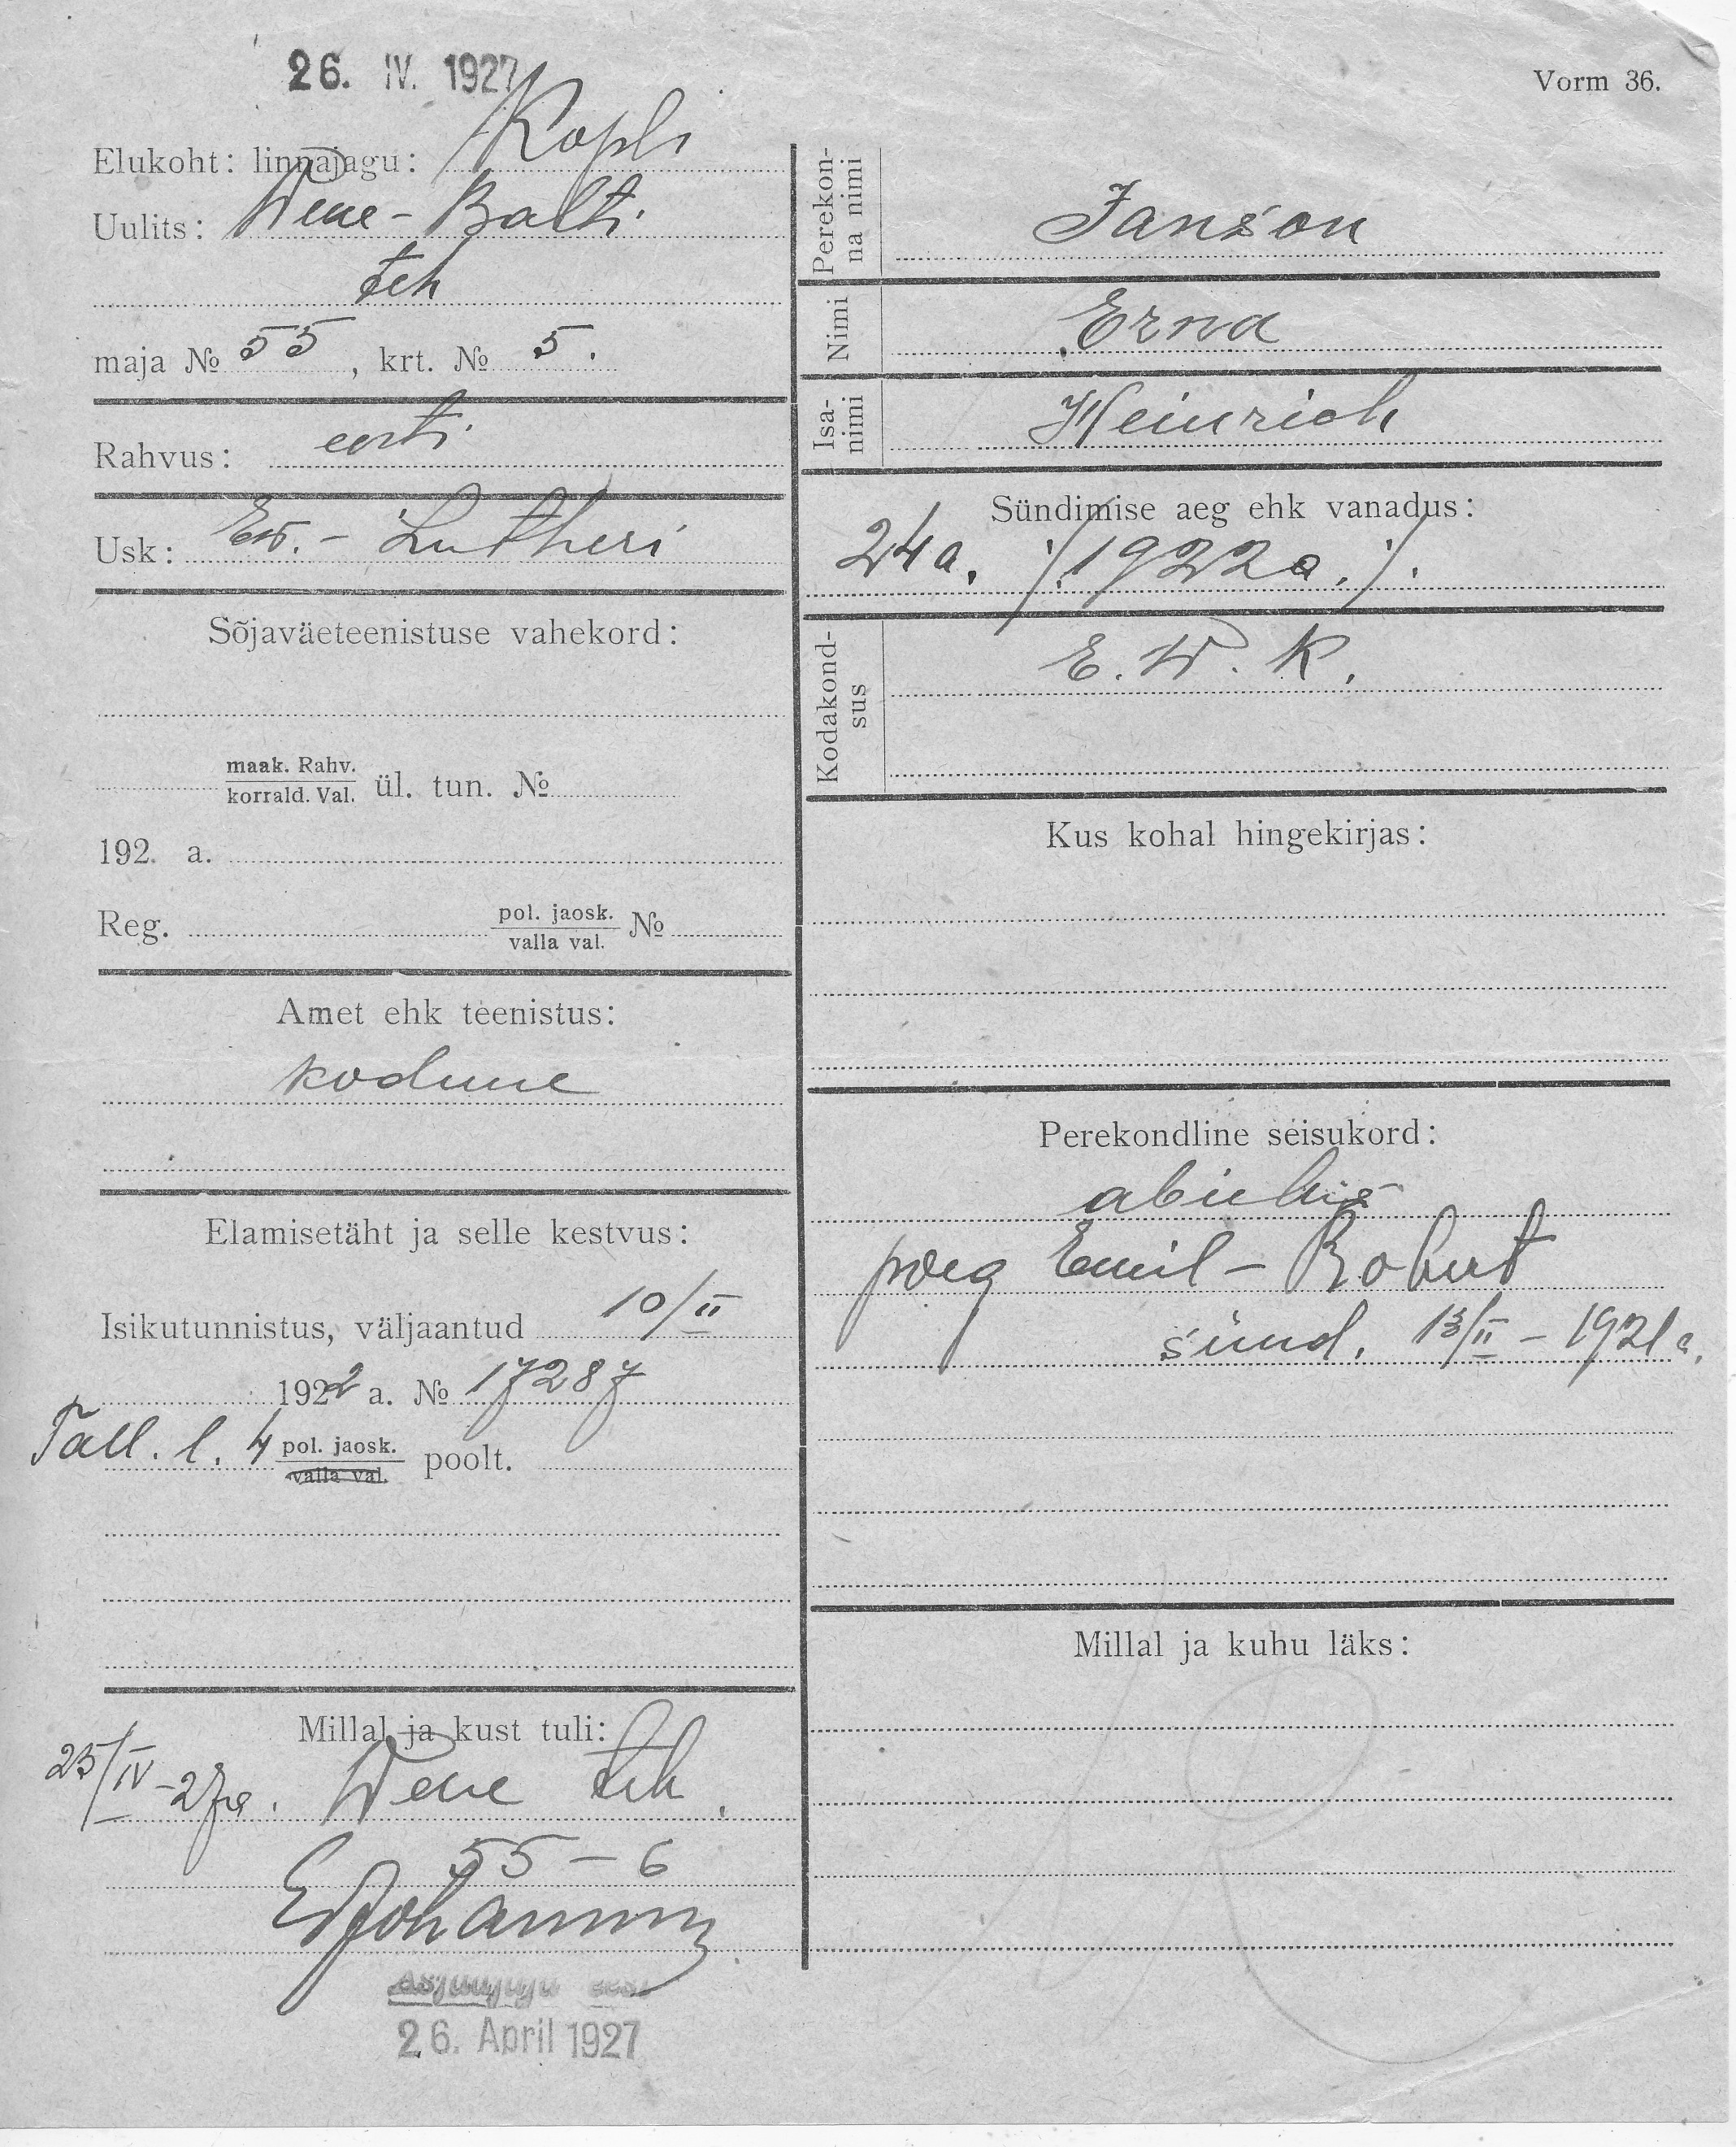 26. IV. 1927
Vorm 36.
Elukoht: linnajagu: Kopli
Uulits: Wene-Balti
teh
maja № 55, krt. № 5.
Rahvus: eesti
Usk: Ew.- Lutheri
Sõjaväeteenistuse vahekord:
maak. Rahv.
korrald. Val. ül. tun. №
192. a.
Reg. pol. jaosk.
valla val. №
Amet ehk teenistus:
kodune
Elamisetäht ja selle kestvus:
Isikutunnistus, väljaantud 10/II
1922 a. № 17287
Tall. l. 4 pol. jaosk.
valla val. poolt.
Millal ja kust tuli:
25/IV-27a. Wene teh.
55-6
26. April 1927
Perekon-
na nimi
Janson
Nimi
Erna
Isa-
nimi
Heinrich
Sündimise aeg ehk vanadus:
24a. /.1922a./.
Kodakond-
sus
E. W. K.
Kus kohal hingekirjas:
Perekondline seisukord:
poeg Emil-Robert
sünd. 13/II-1921a.
Millal ja kuhu läks: